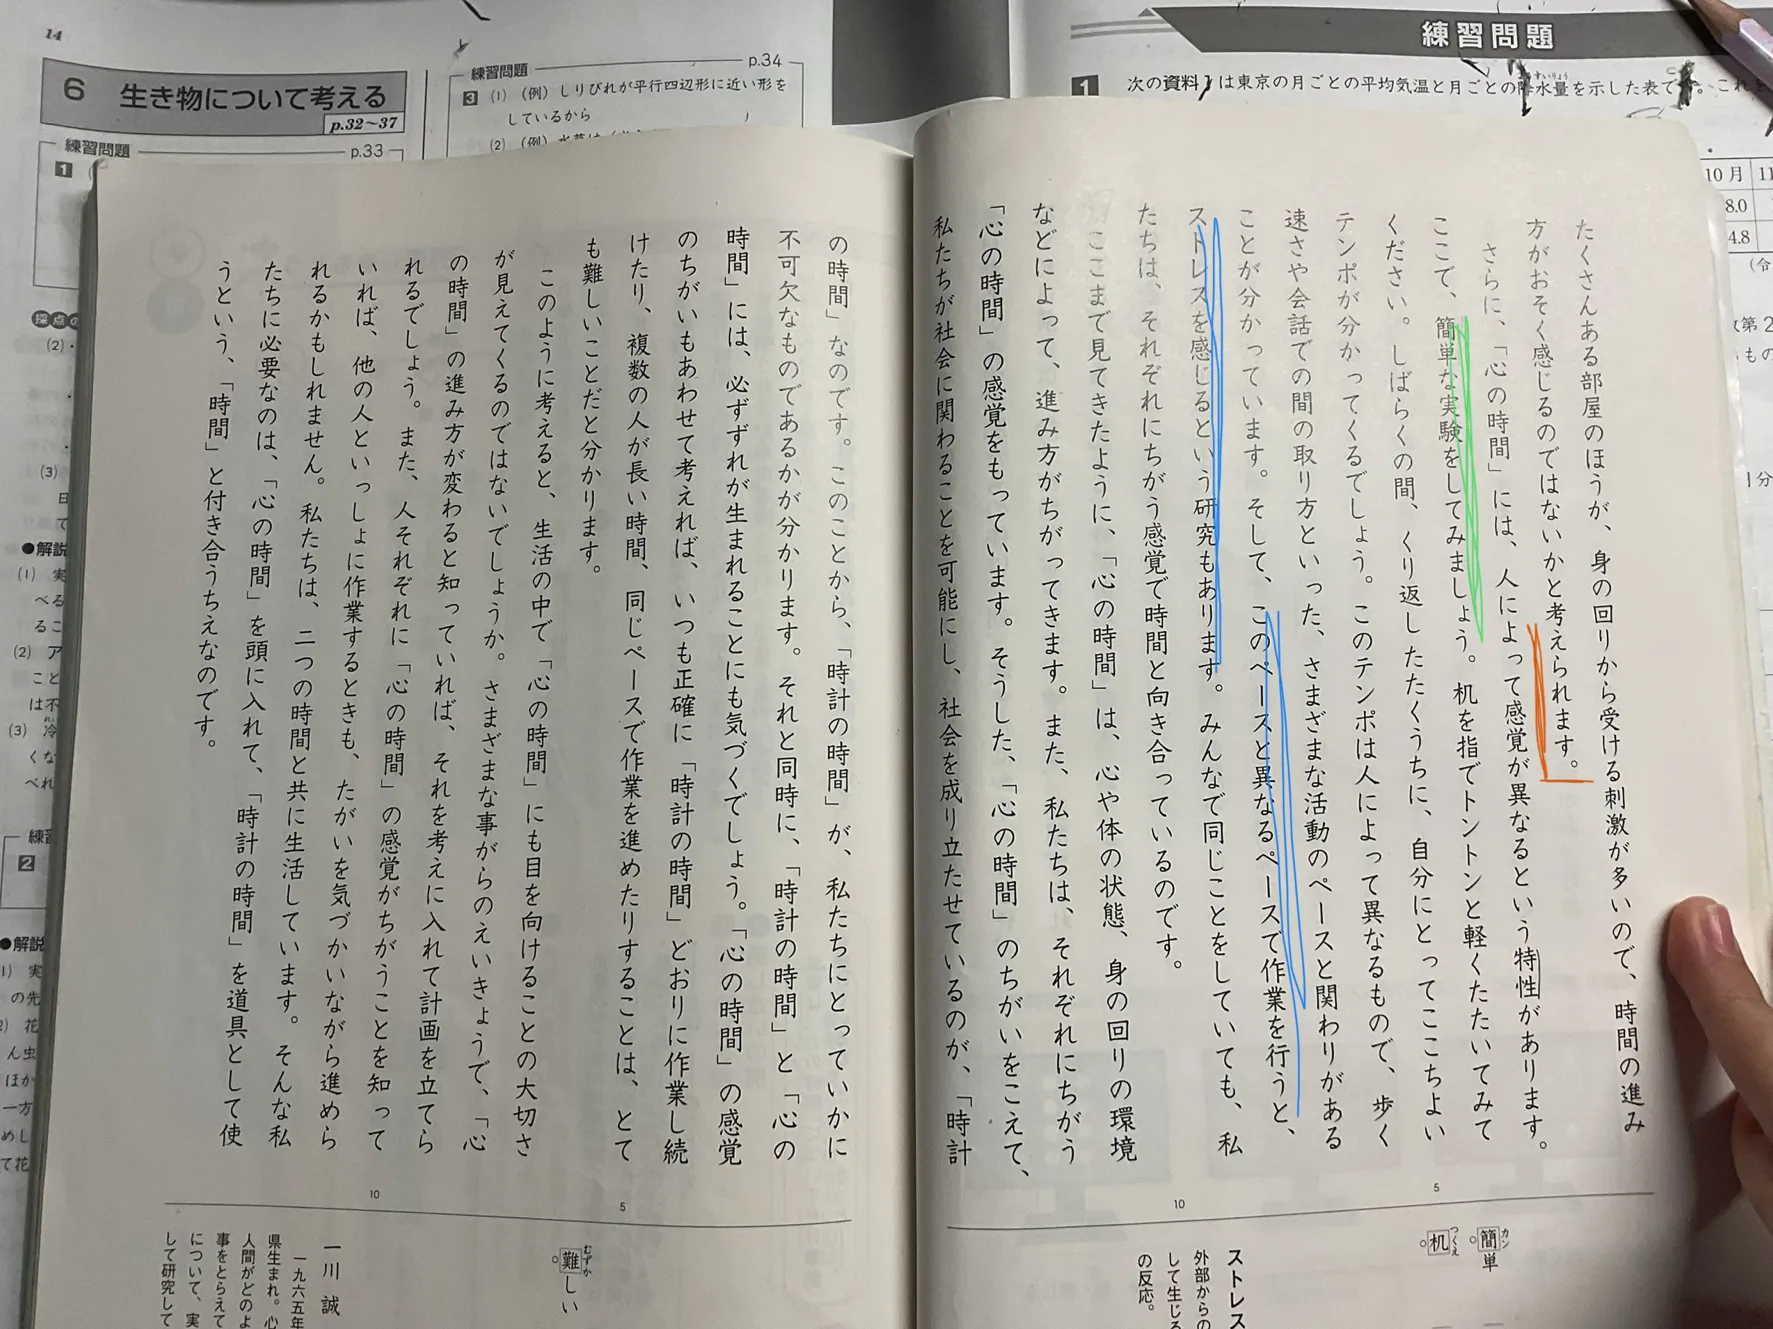 たくさんある部屋のほうが、身の回りから受ける刺激が多いので、時間の進み
方がおそく感じるのではないかと考えられます。
さらに、「心の時間」には、人によって感覚が異なるという特性があります。
ここで、簡単な実験をしてみましょう。机を指でトントンと軽くたたいてみて
ください。しばらくの間、くり返したたくうちに、自分にとってここちよい
テンポが分かってくるでしょう。このテンポは人によって異なるもので、歩く
速さや会話での間の取り方といった、さまざまな活動のペースと関わりがある
ことが分かっています。そして、このペースと異なるペースで作業を行うと、
ストレスを感じるという研究もあります。みんなで同じことをしていても、私
たちは、それぞれにちがう感覚で時間と向き合っているのです。
ここまで見てきたように、「心の時間」は、心や体の状態、身の回りの環境
などによって、進み方がちがってきます。また、私たちは、それぞれにちがう
「心の時間」の感覚をもっています。そうした、「心の時間」のちがいをこえて、
私たちが社会に関わることを可能にし、社会を成り立たせているのが、「時計
5
10
簡単
カン
机
つくえ
ストレス
外部からの
して生じる
の反応。
の時間」なのです。このことから、「時計の時間」が、私たちにとっていかに
不可欠なものであるかが分かります。それと同時に、「時計の時間」と「心の
時間」には、必ずずれが生まれることにも気づくでしょう。「心の時間」の感覚
のちがいもあわせて考えれば、いつも正確に「時計の時間」どおりに作業し続
けたり、複数の人が長い時間、同じペースで作業を進めたりすることは、とて
も難しいことだと分かります。
このように考えると、生活の中で「心の時間」にも目を向けることの大切さ
が見えてくるのではないでしょうか。さまざまな事がらのえいきょうで、「心
の時間」の進み方が変わると知っていれば、それを考えに入れて計画を立てら
れるでしょう。また、人それぞれに「心の時間」の感覚がちがうことを知って
いれば、他の人といっしょに作業するときも、たがいを気づかいながら進めら
れるかもしれません。私たちは、二つの時間と共に生活しています。そんな私
たちに必要なのは、「心の時間」を頭に入れて、「時計の時間」を道具として使
うという、「時間」と付き合うちえなのです。
5
10
難しい
むずか
一川 誠
一九六五年
県生まれ。心
人間がどのよ
事をとらえて
について、実
して研究して
14
6 生き物について考える
p.32〜37
練習問題
p.33
1
練習問題
p.34
3 (1) (例) しりびれが平行四辺形に近い形を
しているから
練習問題
1 次の資料1は東京の月ごとの平均気温と月ごとの降水量を示した表です。これを
10月 11
8.0
4.8
(令
●解説
(1) 実
べる
るこ
(2) ア
こと
は不
(3) 冷
くな
べれ
2
●解説